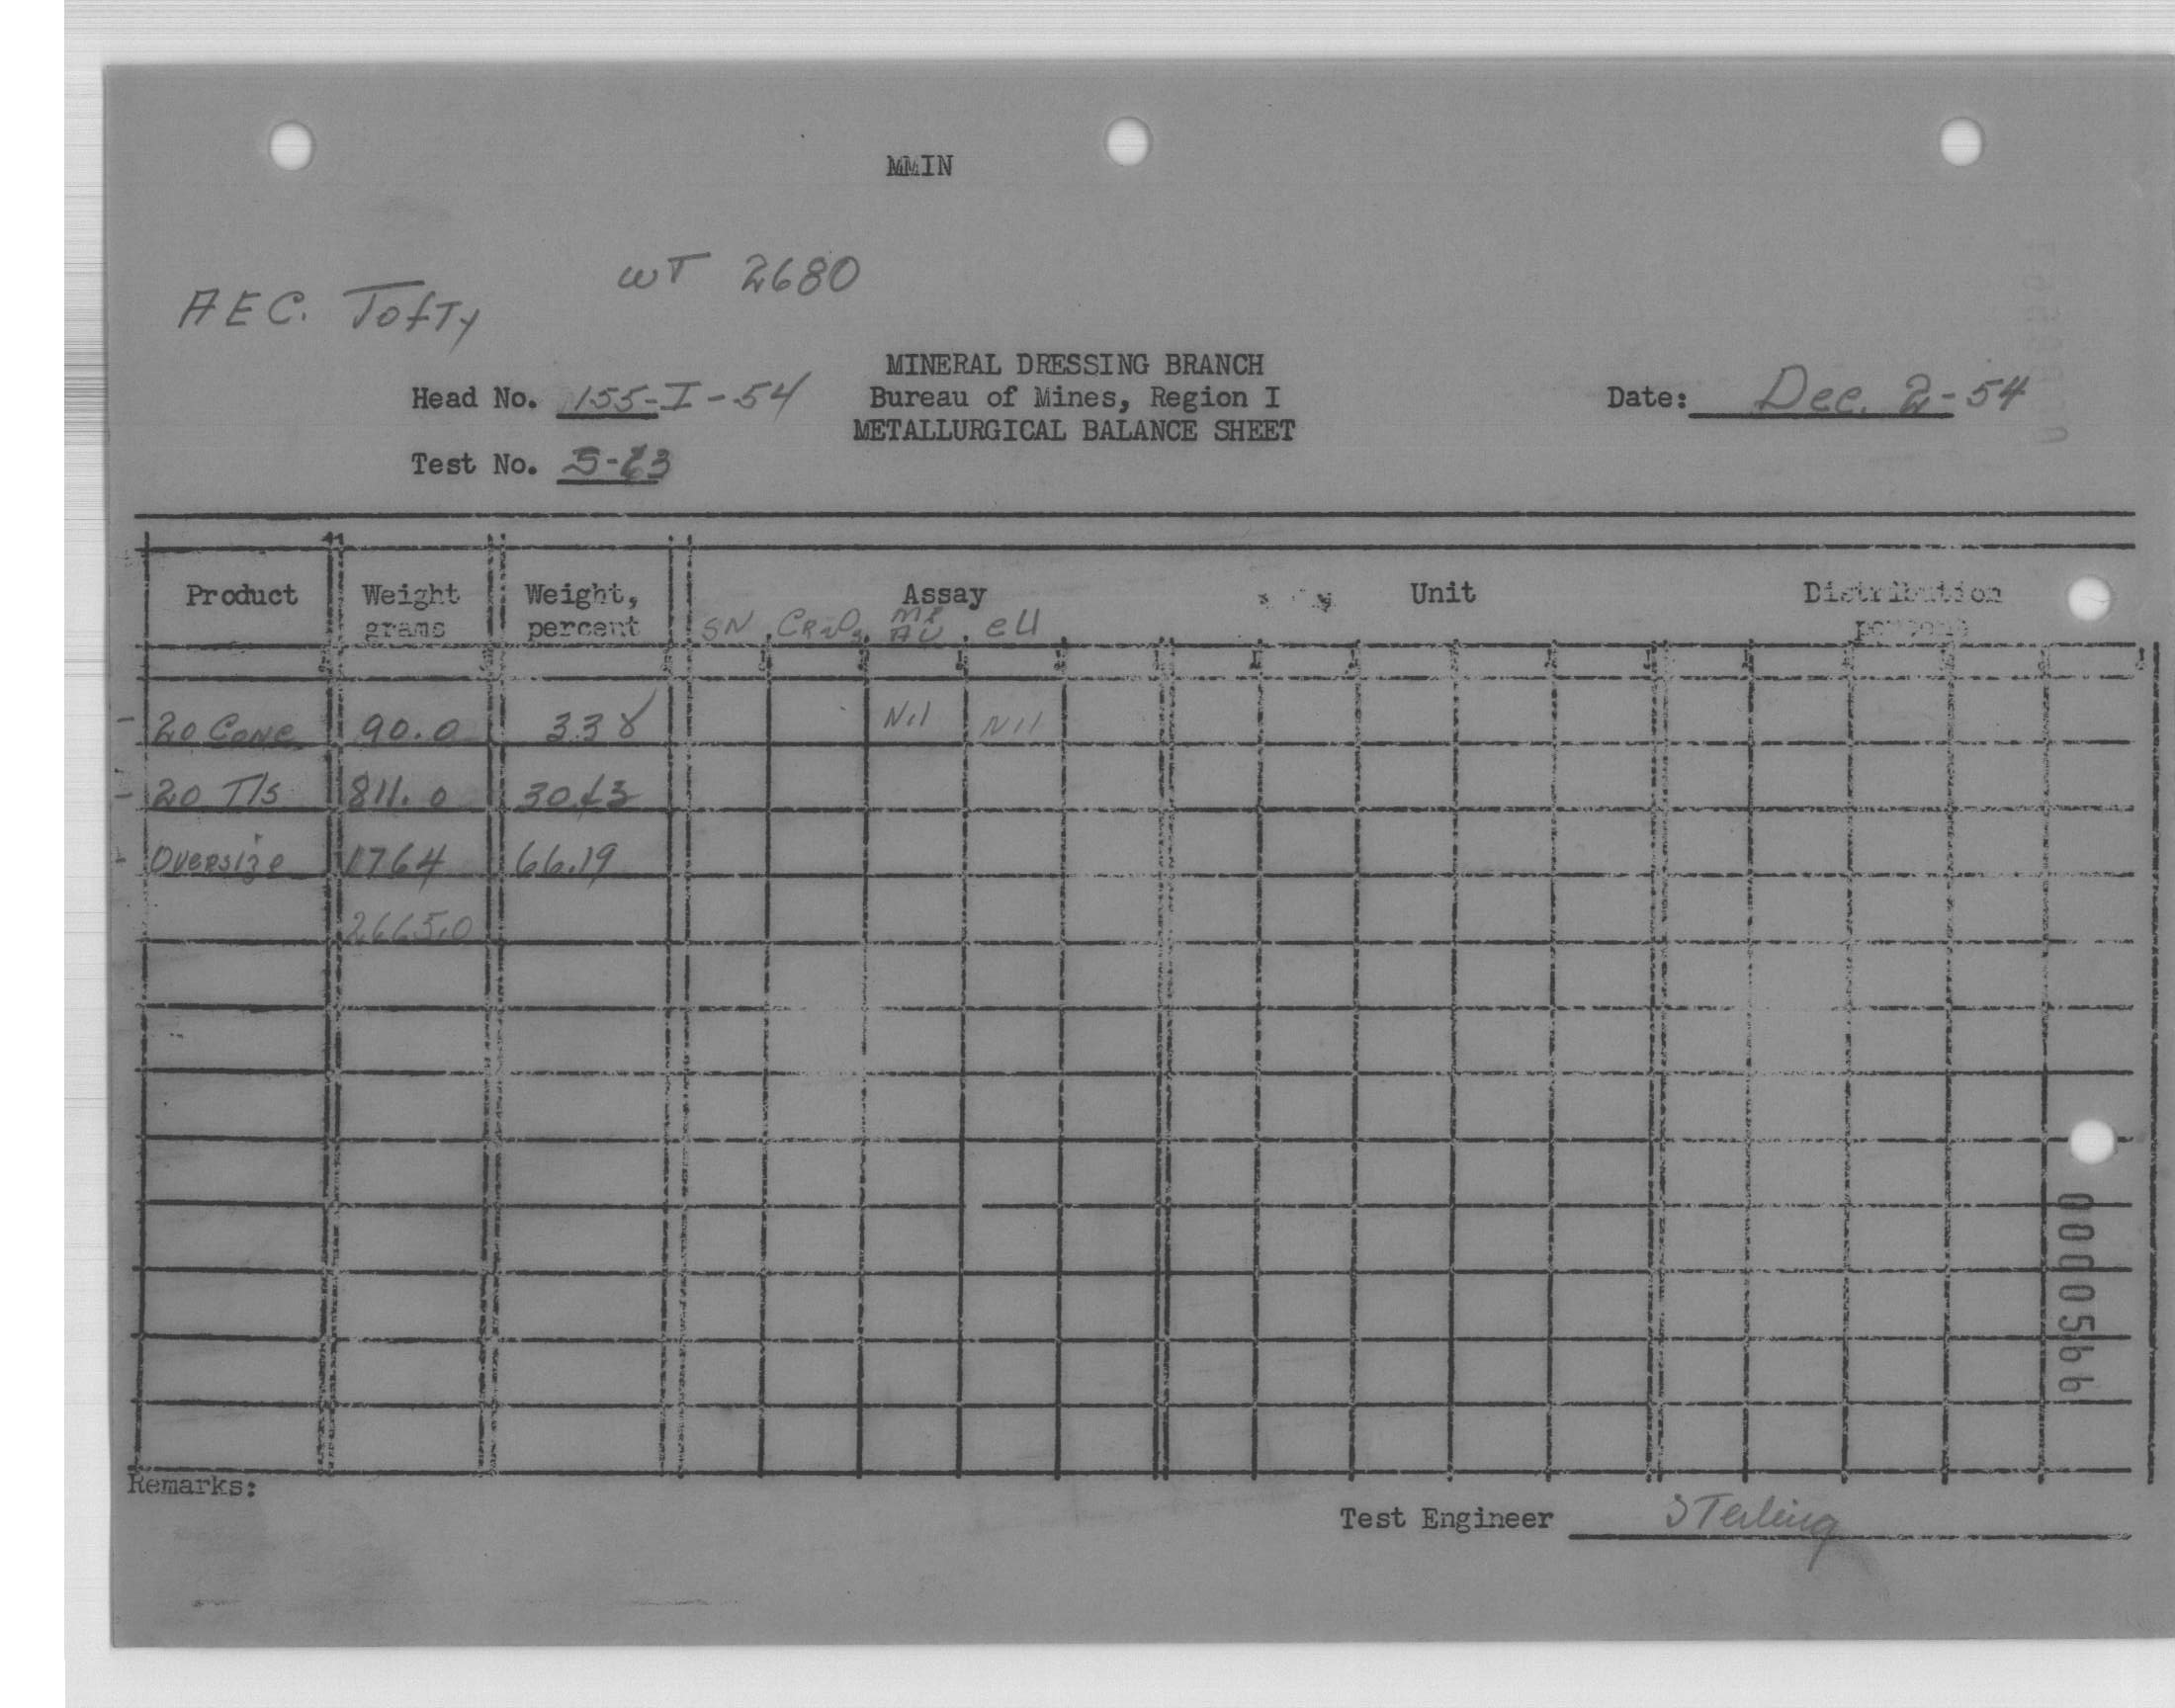 MMIN
WT 2680
AEC. Tofty
MINERAL DRESSING BRANCH
Head No. 155-I-54 Bureau of Mines, Region I Date: Dec. 2-54
METALLURGICAL BALANCE SHEET
Test No.
Product Weight grams Weight, percent Assay Unit Distribution percent
SN CR2O3 Mg AU eU
-20 Conc 90.0 3.38 Nil Nil
-20 Tls 811.0 30.43
Oversize 1764 66.19
2665.0
Remarks:
Test Engineer Sterling
0000566